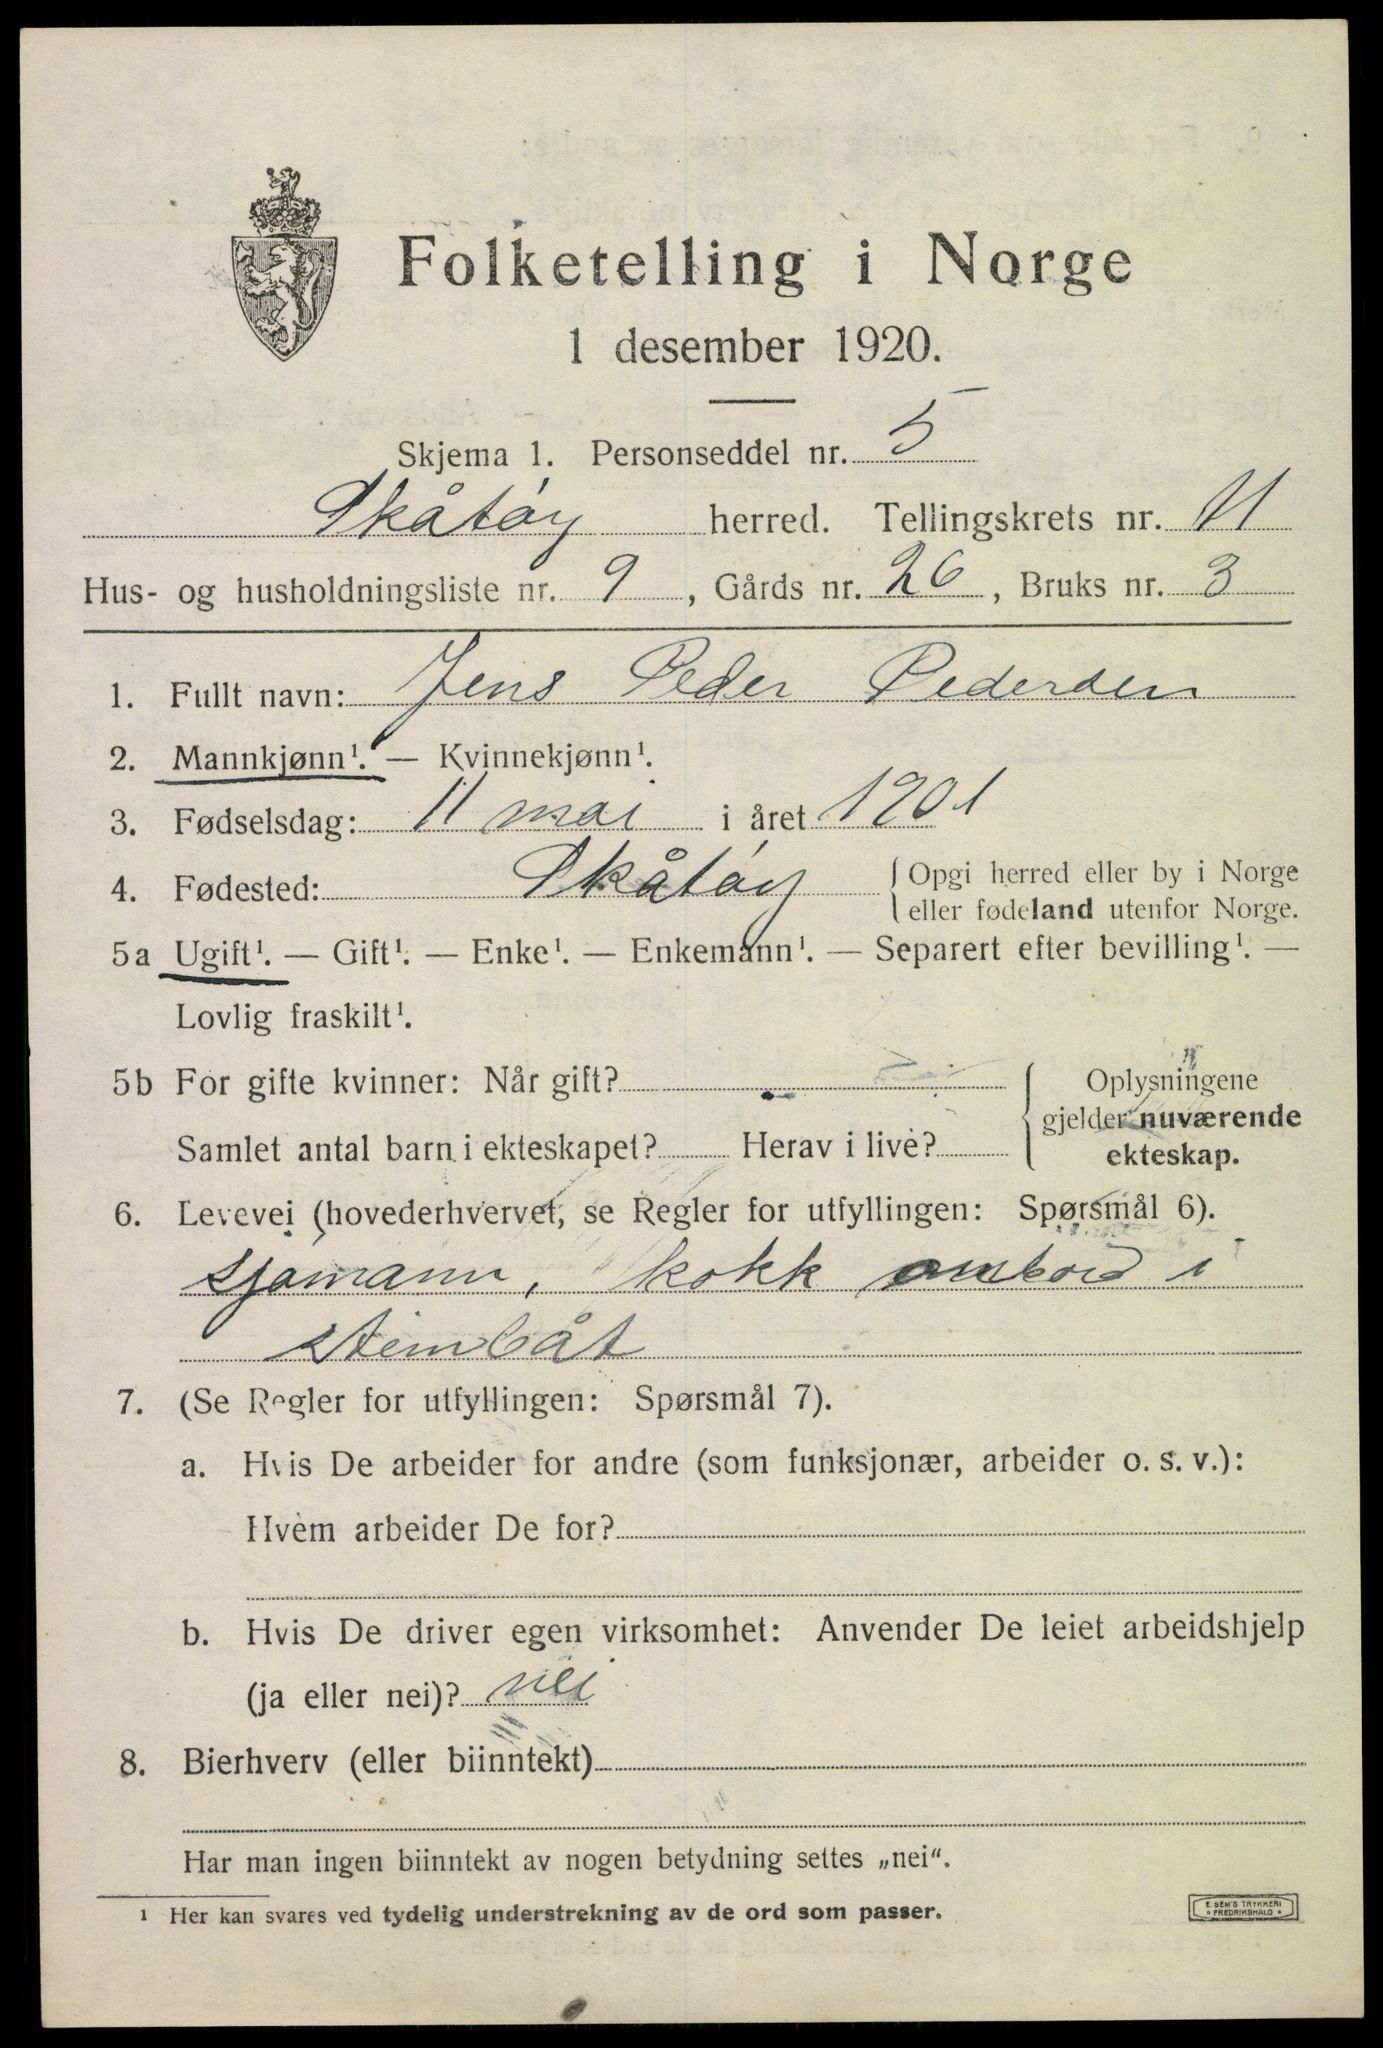 Folketelling i Norge
1 desember 1920.
Skjema 1. Personseddel nr. 5
Skåtøy herred. Tellingskrets nr. 11
Hus- og husholdningsliste nr. 9, Gårds nr. 26, Bruks nr. 3
1. Fullt navn: Jens Peder Pedersen
2. Mannkjønn¹. — Kvinnekjønn¹.
3. Fødselsdag: 11 mai i året 1901
4. Fødested: Skåtøy {Opgi herred eller by i Norge
eller fødeland utenfor Norge.
5a Ugift¹. — Gift¹. — Enke¹. — Enkemann¹. — Separert efter bevilling¹. —
Lovlig fraskilt¹.
5b For gifte kvinner: Når gift?
Samlet antal barn i ekteskapet? Herav i live?
{Oplysningene
gjelder nuværende
ekteskap.
6. Levevei (hovederhvervet, se Regler for utfyllingen: Spørsmål 6).
sjømann, kokk ombord i
stembåt
7. (Se Regler for utfyllingen: Spørsmål 7).
a. Hvis De arbeider for andre (som funksjonær, arbeider o. s. v.):
Hvem arbeider De for?
b. Hvis De driver egen virksomhet: Anvender De leiet arbeidshjelp
(ja eller nei)? nei
8. Bierhverv (eller biinntekt)
Har man ingen biinntekt av nogen betydning settes „nei".
¹ Her kan svares ved tydelig understrekning av de ord som passer.
E. SEM'S TRYKKERI
FREDRIKSHALD